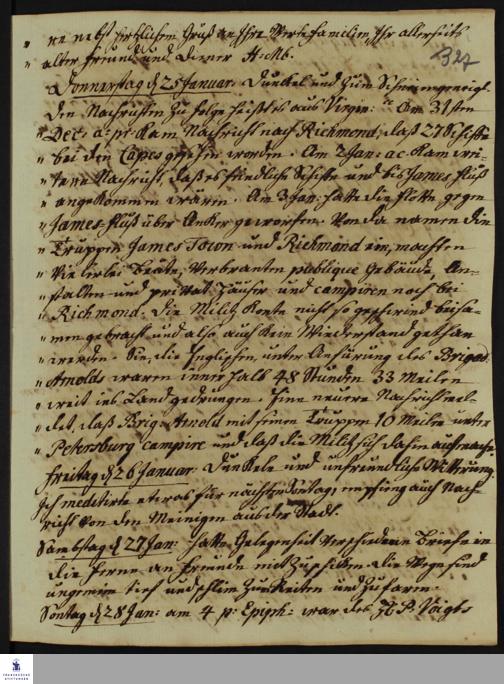 " re nebst hertzlichem Gruß an Ihre Werte Familien, Ihr allerseits
" alter Freund und Diener H: Mb.
327
Donnerstag d 25 Januar. Dunkel und zum Schneien geneigt.
Den Nachrichten zu folge heißt es aus Virgin: " Am 31sten
" Dec. a: pr: kam Nachricht nach Richmond, daß 27 Schiffe
" bei den Capes gesehen worden. Am 2 Jan: ac. kam wei-
" tere Nachricht, daß es feindliche Schiffe und bis James Fluß
" angekommen wären. Am 3 Jan: hatte die Flotte gegen
" James Fluß über Anker geworfen. Von da namen die
" Truppen James Town und Richmond ein, machten
" vielerlei Beute, verbranten publique Gebäude, An-
" stalten und privat Häuser und campiren noch bei
" Richmond. Die Militz konte nicht so geschwind beisa-
" men gebracht und also auch kein Wiederstand gethan
" werden. Sie, die Englischen, unter Anfürung des Brigad.
" Arnolds waren innerhalb 48 Stunden 33 Meilen
" weit ins Land gedrungen. Eine neuere Nachricht mel-
" det, daß Brig: Arnold mit seinen Truppen 10 Meilen unter
" Petersburg campire und daß die Militz sich dahin aufmache.
Freitag d 26 Januar. Dunkele und unfreundliche Witterung.
Ich meditirte etwas für nächsten Sontag, empfieng auch Nach-
richt von den Meinigen aus der Stadt.
Sambstag d 27 Jan: hatte Gelegenheit verschiedene Briefe in
die Ferne an Freunde mit zu schiken. Die Wege sind
ungemein tief und schlim zum Reiten und zu farn.
Sontag d 28 Jan: am 4 p: Epiph: war des H E P. Voigts
FRANCKESCHE
STIFTUNGEN